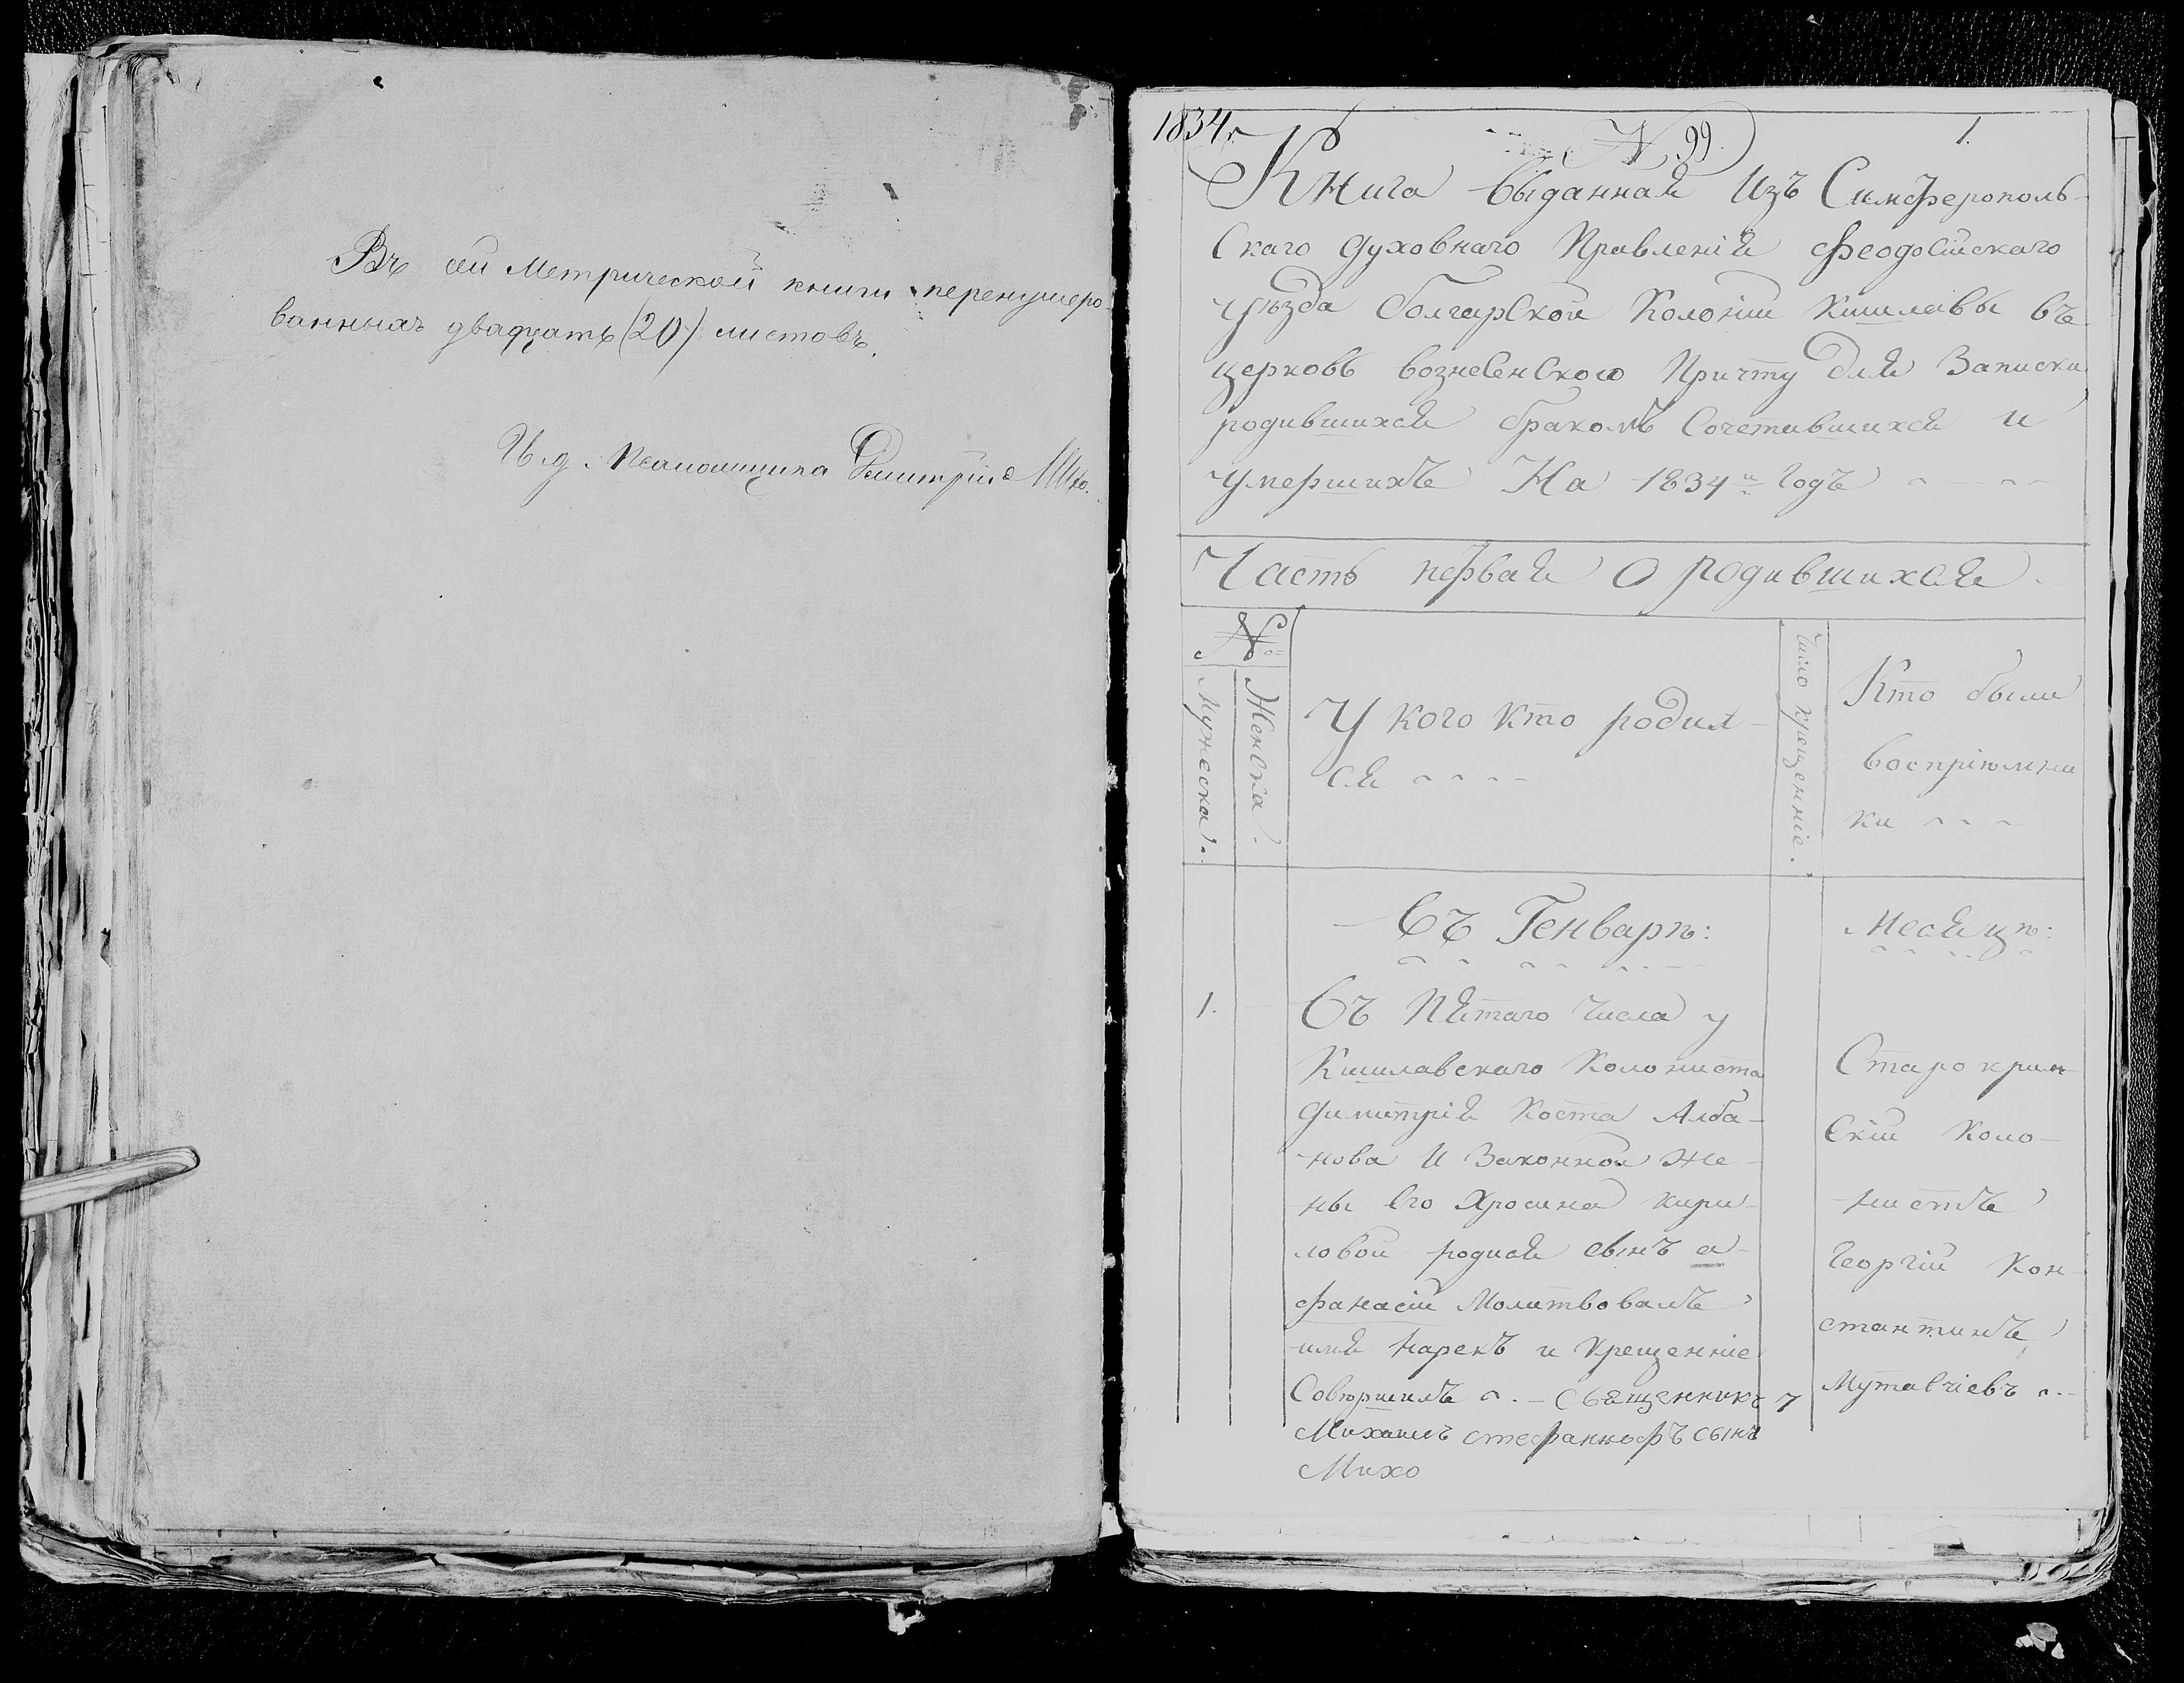 Въ сей Метрической книги перенумеро-
ванныхъ двадцать (20) листовъ.
И. д. Псаломщика Димитрій
1834 г.
N 99
1.
Книга выданная Изъ Симферополь-
Скаго Духовнаго Правленія Феодосійскаго
Уѣзда Болгарской Колоніи Кишлавы въ
церковь вознесенского Причту для Записки
родившихся бракомъ Сочетавшихся и
умершихъ На 1834й Годъ
Часть первая О родившихся.
№
Мужеска.
Женска.
У кого кто родил-
ся
Число крещенніе.
Кто были
воспріюмни
ки
Въ Генварѣ:
Месяцѣ:
1.
Въ Пятаго Числа у
Кишлавскаго Колониста
Димитрія Коста Алба-
нова И Законной Же-
ны Его Хросина кири-
ловой родися сынъ а-
фанасій Молитвовалъ
имя нарекъ и Крещенніе
Совюршилъ Священникъ
Михаилъ стефанкофъ сынъ
Михо
7
Старокрим-
Скій Коло-
нистъ
Георгій Кон-
стантинъ
Мутавчіевъ